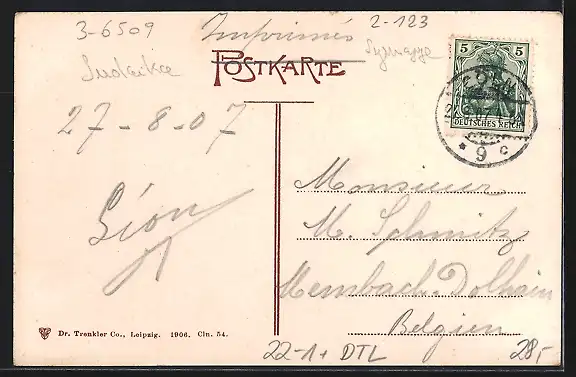 3-6509
Imprimés
2-123
Judaika
POSTKARTE
Synagoge
5 5
DEUTSCHES REICH
* 9 c
27-8-07
Léon
Monsieur
M. Schmitz
Membach-Dolhain
Belgien
Dr. Trenkler Co., Leipzig. 1906. Cln. 54.
22-1+ DTL
28,-